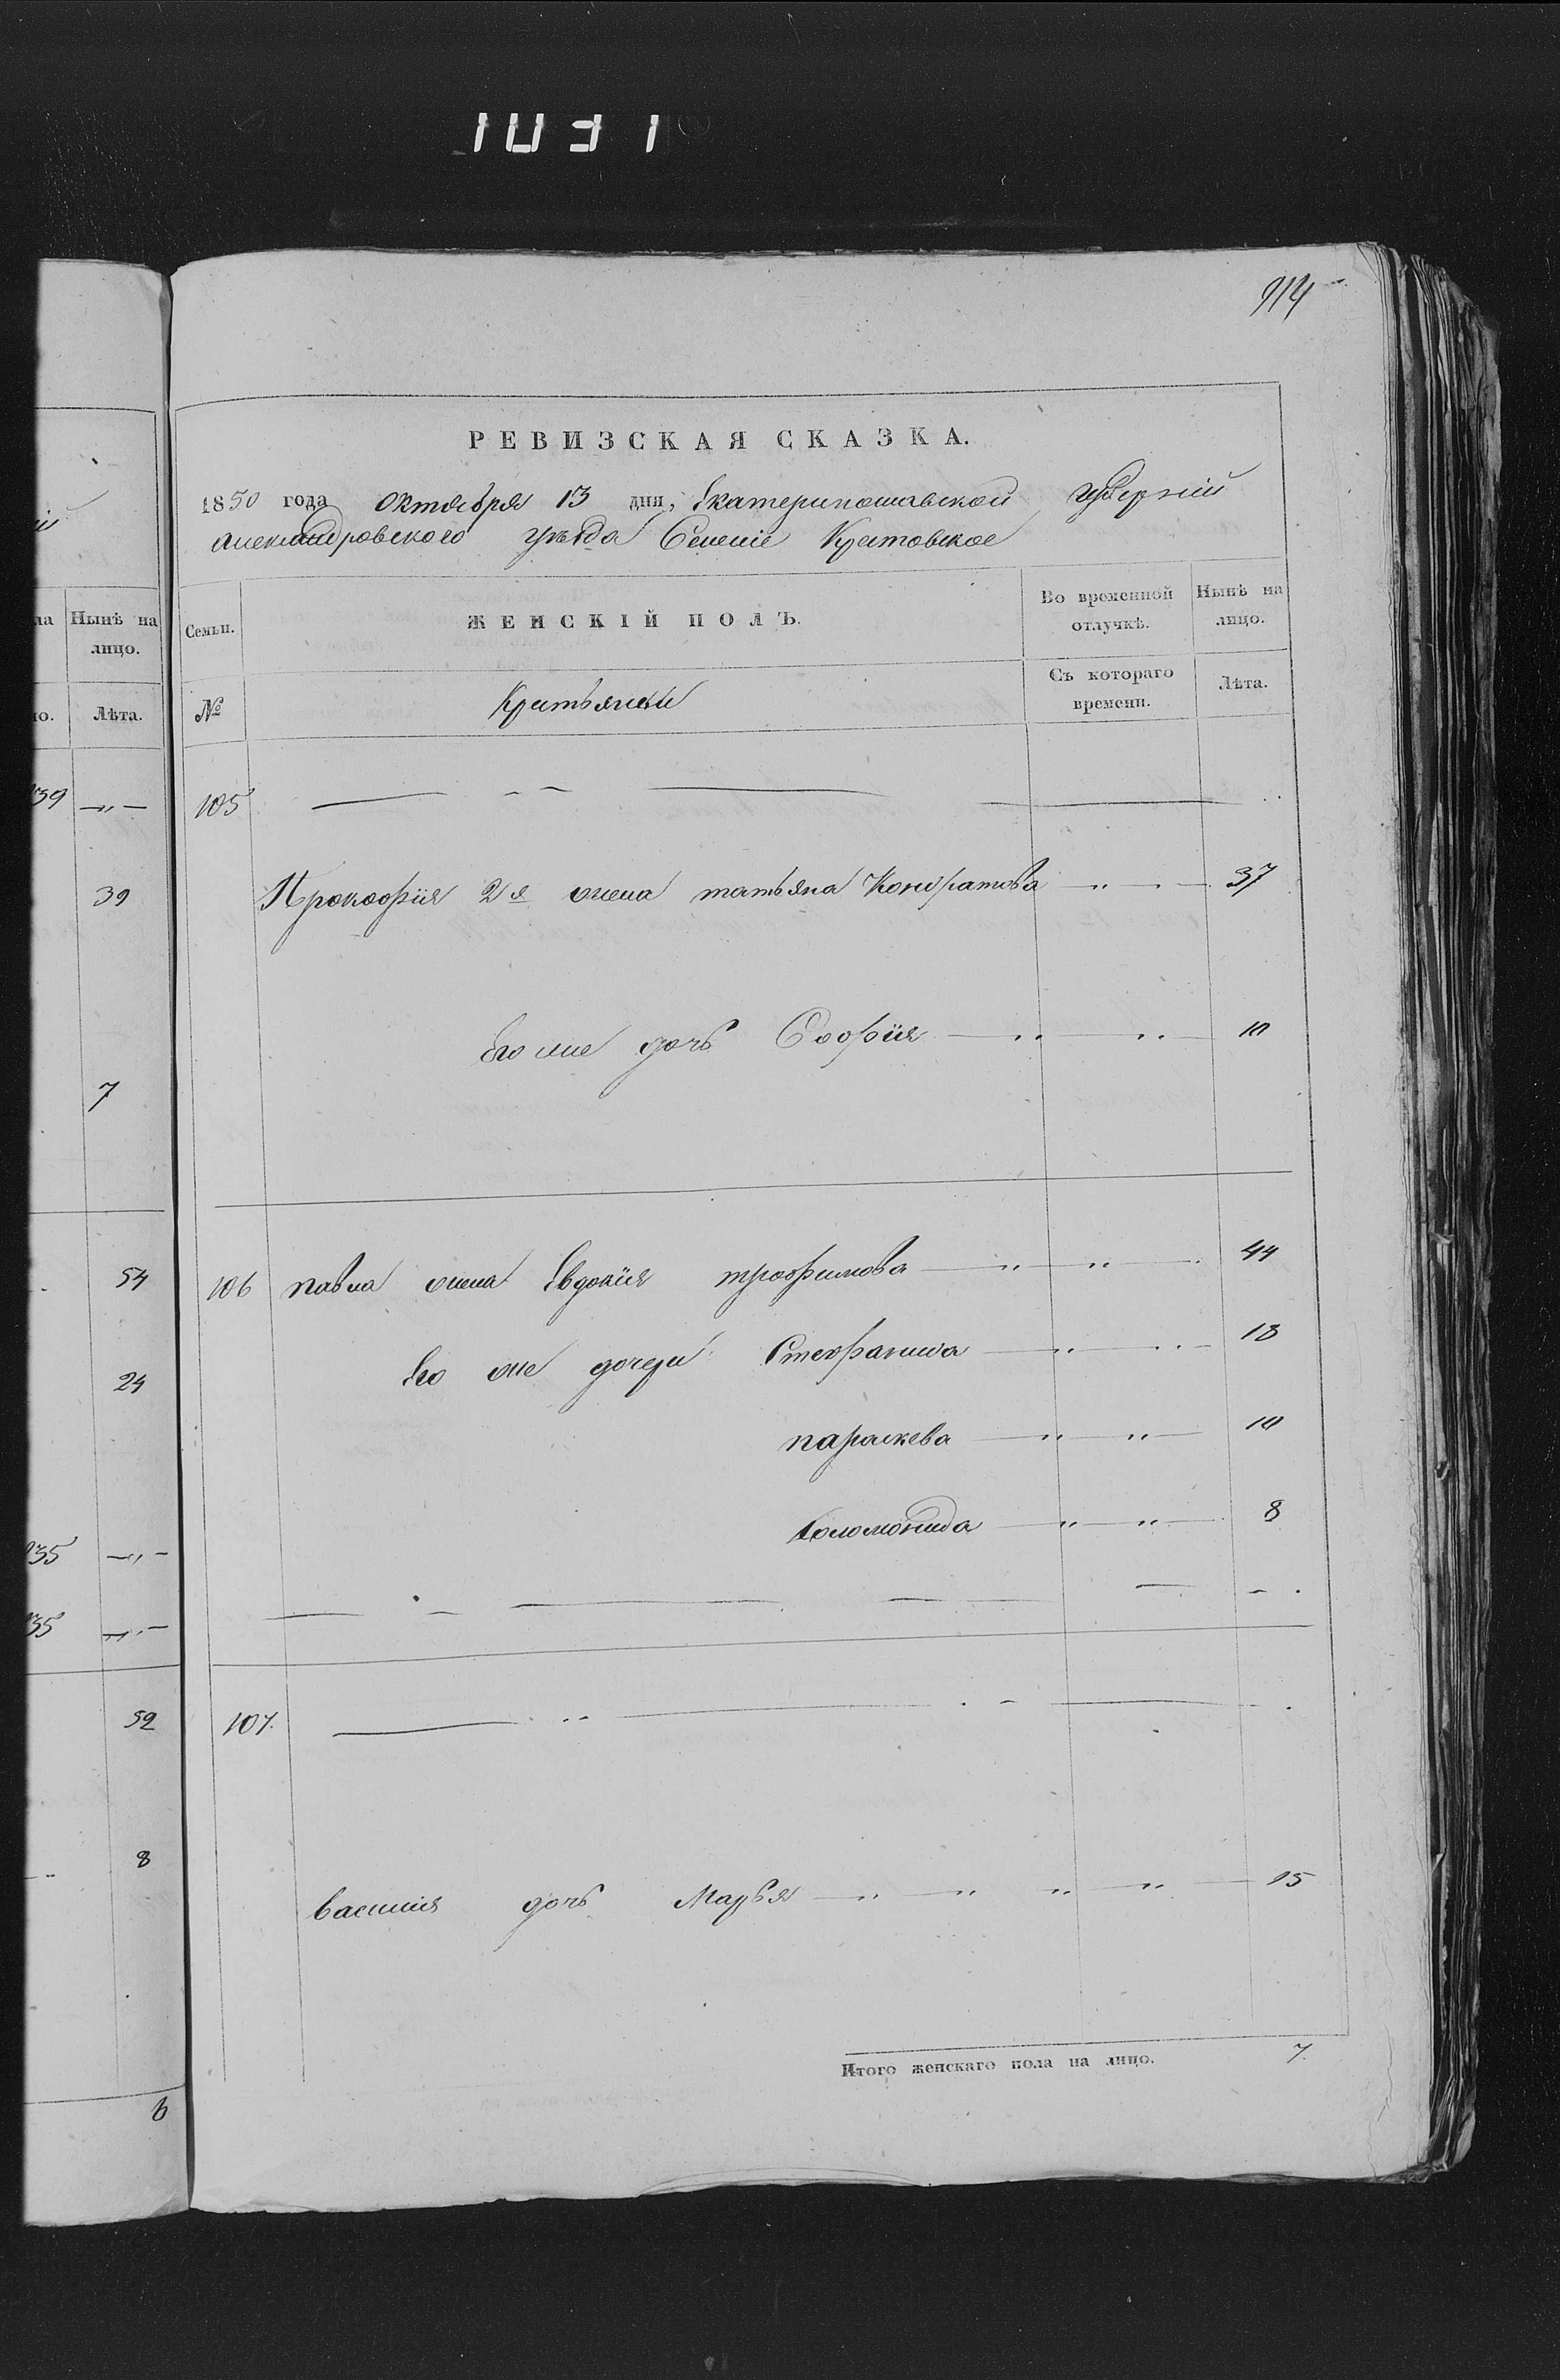 1031
914
РЕВИЗСКАЯ СКАЗКА.
1850 года Октября 13 дня, Екатеринославской губерніи
Александровского уезда Селеніе
Семьи. ЖЕНСКІЙ ПОЛЪ. Во временной отлучкѣ. Нынѣ на лицо.
№ Съ котораго времени. Лѣта.
105
Прокофія 2я жена татьяна Кондратова 37
Его же дочь Софія 10
106 павла жена Евдокія трофимова 44
Его же дочери Стефанида 13
параскева 10
Соломонида 8
107.
василія дочь Марья 15
Итого женскаго пола на лицо. 7.
Нынѣ на
лицо.
Лѣта.
39
39
7
54
24
35
35
52
8
6